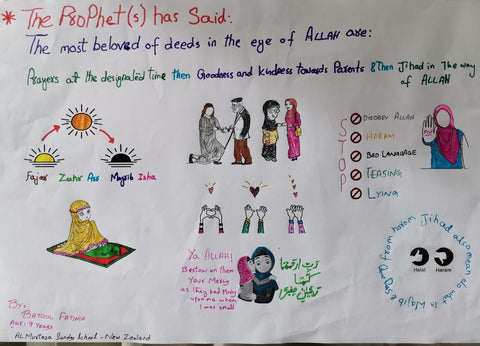 * The Prophet(s) has Said:
The most beloved of deeds in the eye of ALLAH are:
Prayers at the designated time then Goodness and kindness towards Parents & then Jihad in the way
of ALLAH
Fajar Zuhr Asr Magrib Isha
STOP
DISOBEY ALLAH
HARAM
BAD LANGUAGE
TEASING
LYING
STOP
Ya ALLAH!
Bestow on them
Your Mercy
as they had Mercy
upon me when
I was small
رَبِّ ارْحَمْهُمَا
كَمَا
رَبَّيَانِي صَغِيرًا
Jihad also mean do what is Wajib & from haram
Halal Haram
By:
BATOOL FATIMA
AGE: 9 Years
AL Murtaza Sunday School - New Zealand